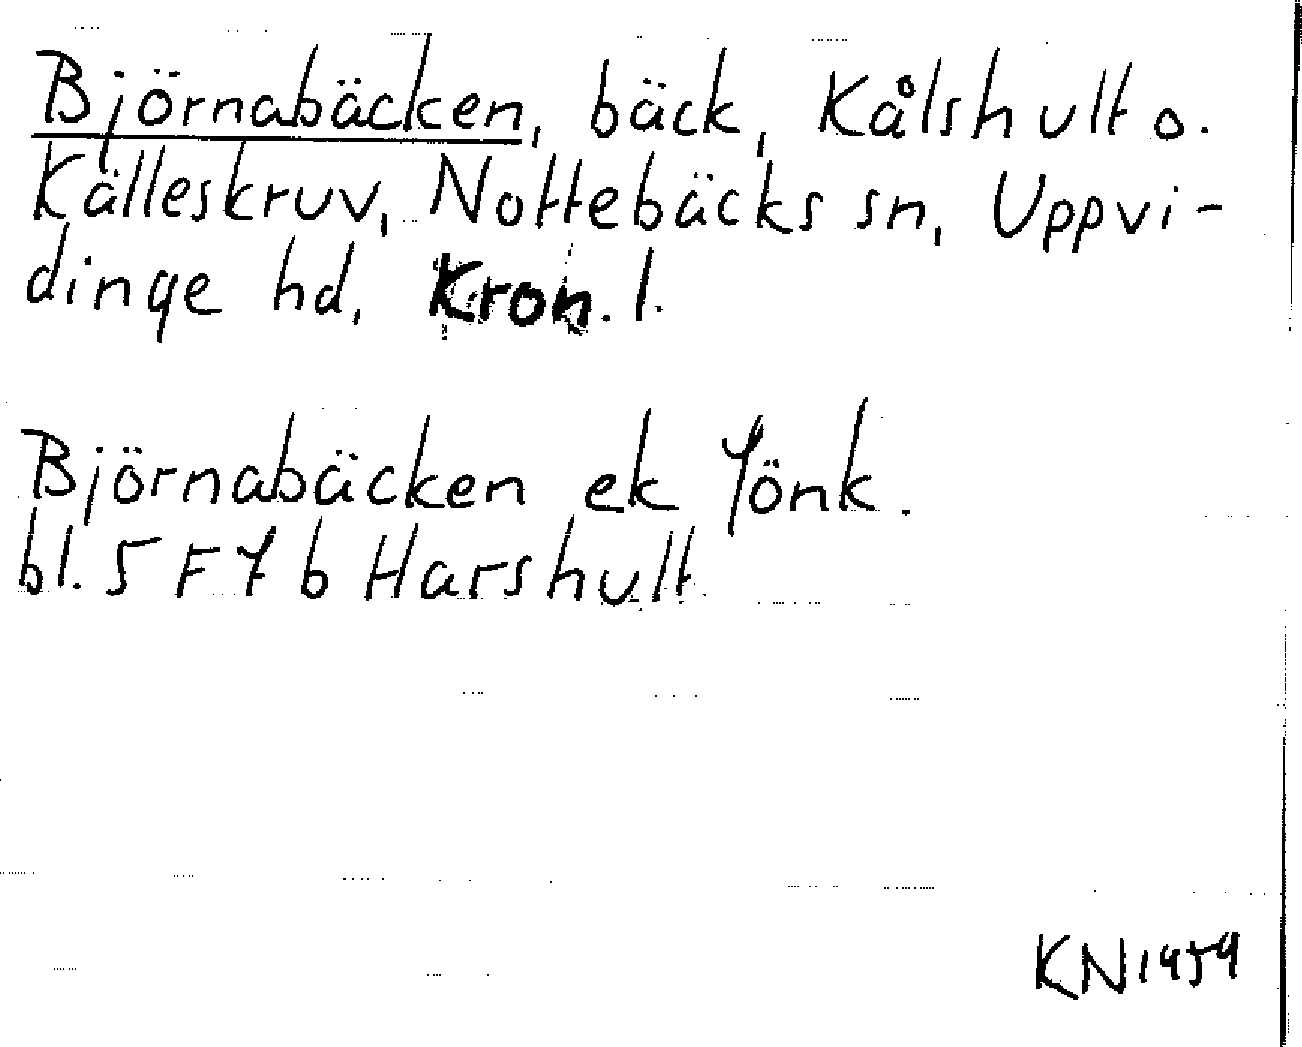 Björnabäcken, bäck, Kålshult o.
Källeskruv, Nottebäcks sn, Uppvi-
dinge hd, Kron. l.
Björnabäcken ek Jönk.
bl. 5 F 7 b Harshult
KN 1959